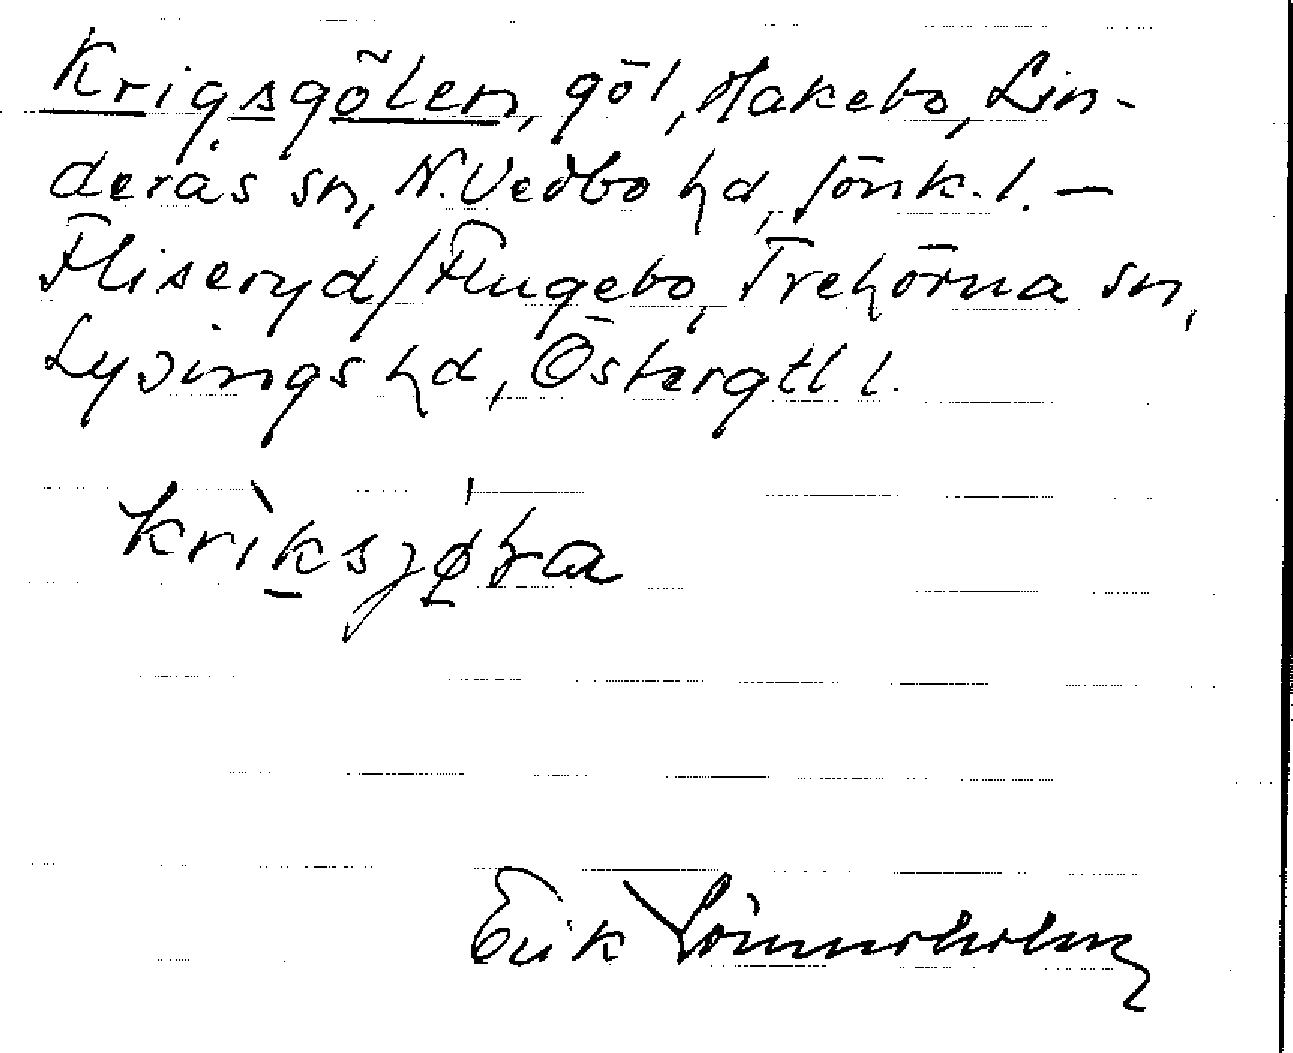 Krigsgölen, göl, Hakebo, Lin-
derås sn, N. Vedbo hd, Jönk. l. –
Fliseryd/Flugebo, Trehörna sn,
Lysings hd, Östergtl l.
Erik